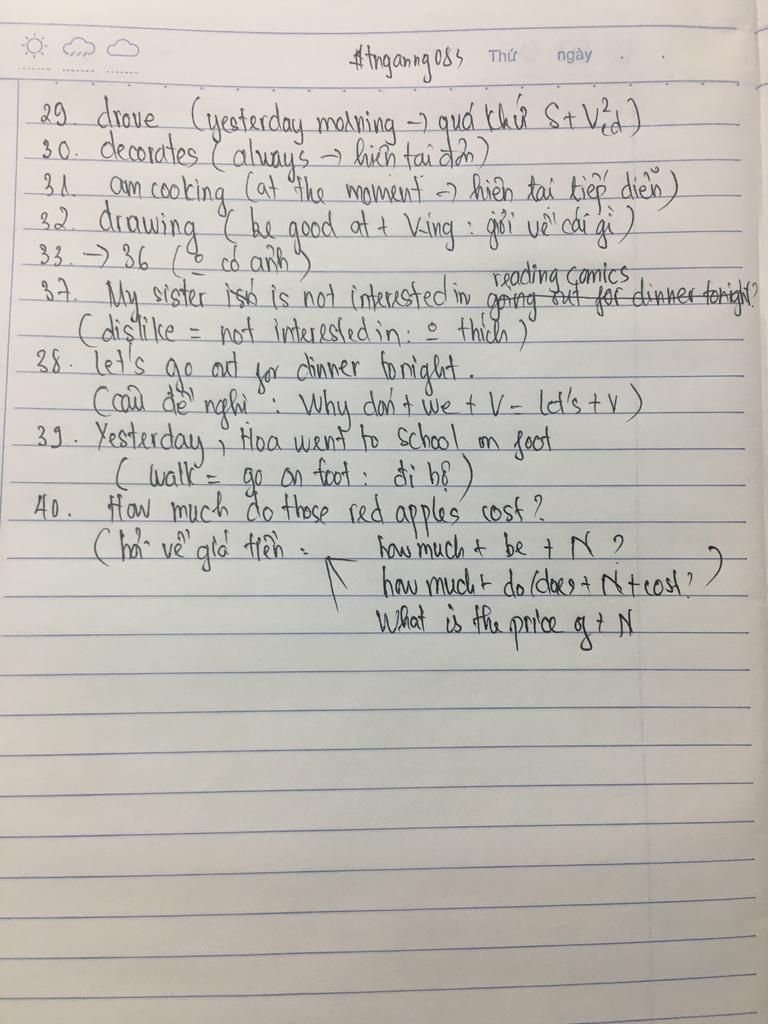 #tnganng083 Thứ ngày
29. drove (yesterday morning → quá khứ S + V2/ed)
30. decorates (always → hiện tại đơn)
31. am cooking (at the moment → hiện tại tiếp diễn)
32. drawing (be good at + Ving : giỏi về cái gì)
33. → 36 (ō có ảnh)
reading comics
37. My sister is is not interested in going out for dinner tonight?
(dislike = not interested in: ō thích)
38. let's go out for dinner tonight.
(câu đề nghị : Why don't we + V = let's + V)
39. Yesterday, Hoa went to school on foot
(walk = go on foot : đi bộ)
40. How much do those red apples cost?
(hỏi về giá tiền = how much + be + N ?
how much + do/does + N + cost? )
What is the price of + N